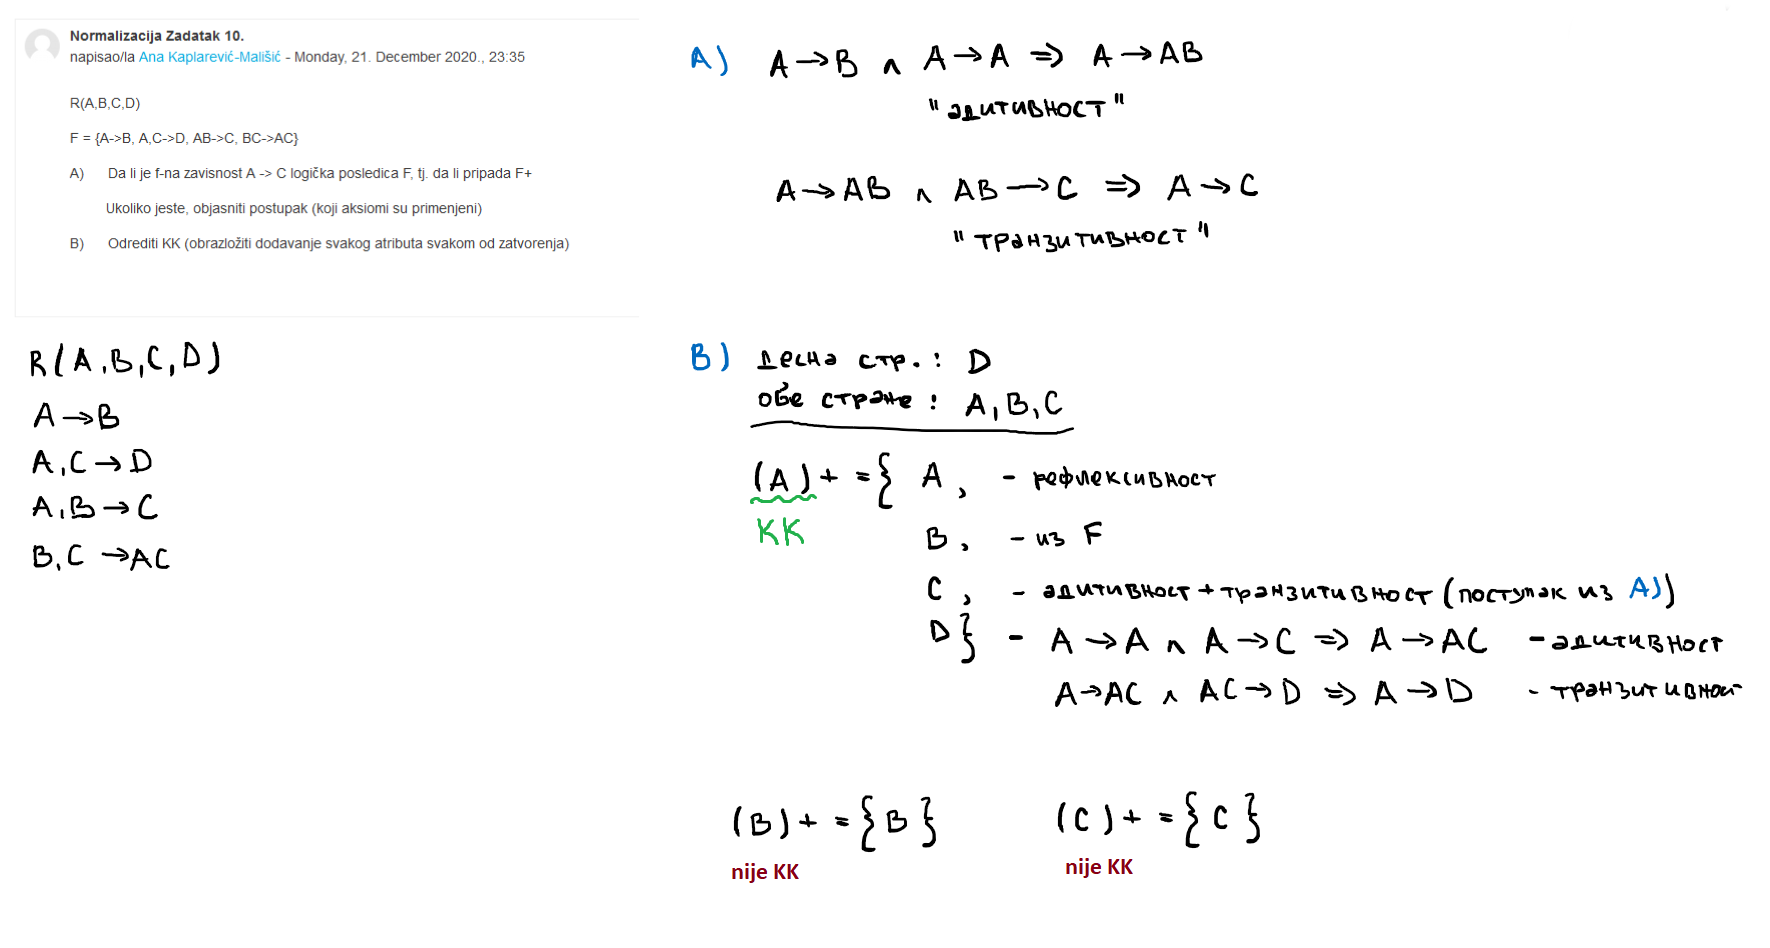 Normalizacija Zadatak 10.
napisao/la Ana Kaplarević-Mališić - Monday, 21. December 2020., 23:35
R(A,B,C,D)
F = {A->B, A,C->D, AB->C, BC->AC}
A) Da li je f-na zavisnost A -> C logička posledica F, tj. da li pripada F+
Ukoliko jeste, objasniti postupak (koji aksiomi su primenjeni)
B) Odrediti KK (obrazložiti dodavanje svakog atributa svakom od zatvorenja)
R(A,B,C,D)
A→B
A,C→D
A,B→C
B,C→AC
A) A→B ∧ A→A ⇒ A→AB
"адитивност"
A→AB ∧ AB→C ⇒ A→C
"транзитивност"
B) десна стр.: D
обе стране: A,B,C
(A)+ = { A, - рефлексивност
KK
B, - из F
C, - адитивност+транзитивност (поступак из A))
D} - A→A ∧ A→C ⇒ A→AC - адитивност
A→AC ∧ AC→D ⇒ A→D - транзитивност
(B)+ = {B} (C)+ = {C}
nije KK nije KK